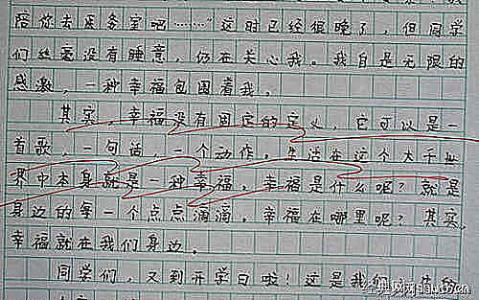 陪你去医务室吧……”这时已经很晚了，但同学
们丝毫没有睡意，仍在关心我。我自是无限的
感激，一种幸福包围着我。
其实，幸福没有固定的定义，它可以是一
首歌，一句话，一个动作。生活在这个大千世
界中本身就是一种幸福，幸福是什么呢？就是
身边的每一个点点滴滴。幸福在哪里呢？其实，
幸福就在我们身边。
同学们，又到开学日啦！这是我们